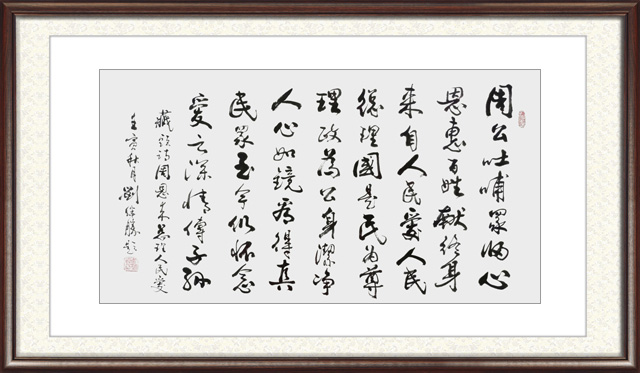 周公吐哺眾歸心
恩惠百姓獻終身
来自人民愛人民
總理國是民為尊
理政為公身潔净
人心如鏡看得真
民眾至今仍怀念
愛之深情傳子孫
藏頭詩周恩来總理人民愛
壬寅秋月劉勝題